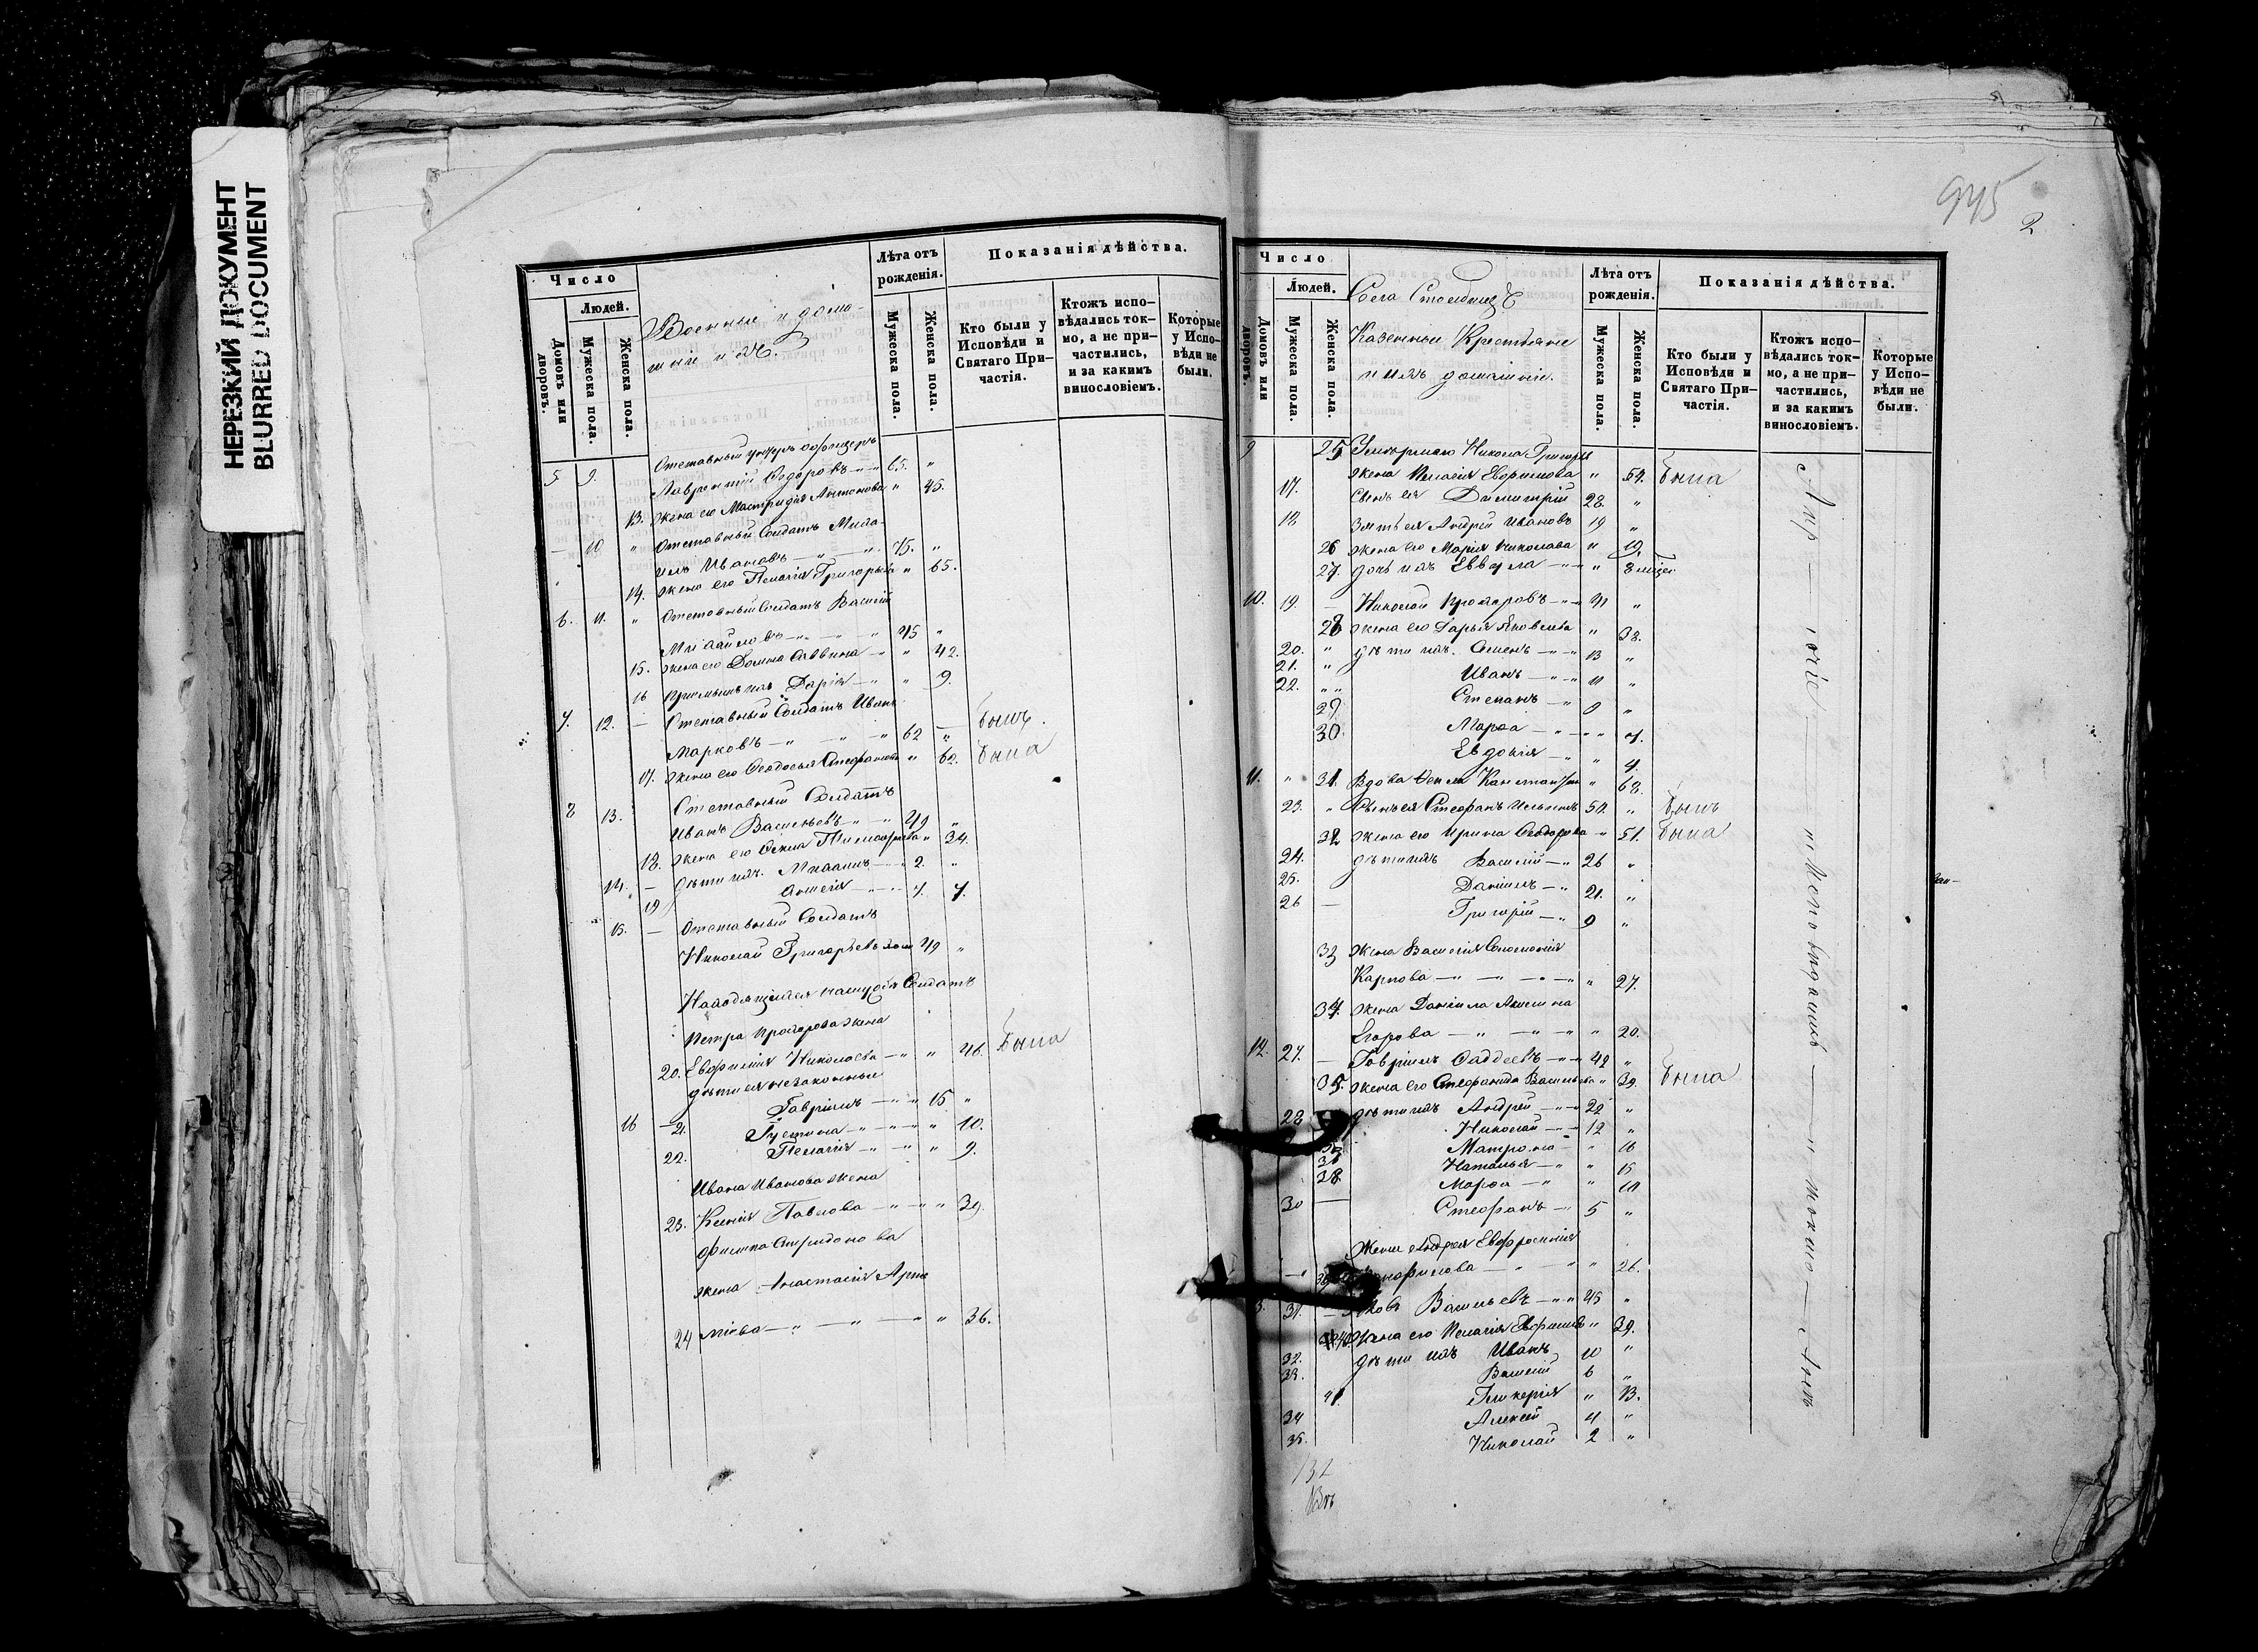 НЕРЕЗКИЙ ДОКУМЕНТ
BLURRED DOCUMENT
Число
Людей.
Домовъ или дворовъ.
Мужеска пола.
Женска пола.
Военные и домо-
шніе ихъ.
Лѣта отъ рожденія.
Мужеска пола.
Женска пола.
Показанія дѣйства.
Кто были у Исповѣди и Святаго Причастія.
Ктожъ исповѣдались токмо, а не причастились, и за какимъ винословіемъ.
Которые у Исповѣди не были.
Отставный унтеръ офицеръ
5 9. Лаврентій Ѳедоровъ 65. "
13. жена его Мастридія Антонова " 45.
10 " Отставный Солдатъ Миха-
илъ Ивановъ 75. "
14. жена его Пелагія Григорьева " 65.
6. 11. " Отставный Солдатъ Василій
Михайловъ 45 "
15. жена его Домна Саввина " 42.
16 пріемышъ ихъ Дарія " 9.
7. 12. — Отставный Солдатъ Иванъ
Марковъ 62 " былъ.
17. жена его Ѳеодосья Стефанова " 62. была
8 13. Отставный Солдатъ
Иванъ Васильевъ 49 "
18. жена его " 34.
14. — дѣти ихъ. Михаилъ 2. "
19 7.
15. — Отставный Солдатъ
Николай Григорьевъ 49 "
Находящихся на службѣ Солдатъ
Петра Прохорова жена
20. Евфимія Николаева " 46. была
дѣти ея незаконные
16 — Гавріилъ 15 "
21. Устина " 10.
22. Пелагія " 9.
Ивана Иванова жена
23. Ксенія Павлова " 39.
Филипа Спиридонова
жена Анастасія
24 " 36.
945
2
Число
Людей.
Домовъ или дворовъ.
Мужеска пола.
Женска пола.
Села
Казенные Крестьяне
и ихъ домашніе.
Лѣта отъ рожденія.
Мужеска пола.
Женска пола.
Показанія дѣйства.
Кто были у Исповѣди и Святаго Причастія.
Ктожъ исповѣдались токмо, а не причастились, и за какимъ винословіемъ.
Которые у Исповѣди не были.
9 25. Умершаго Никола Григорьева
жена Пелагія Евфимова " 54. была
17. Сынъ ея Димитрій 28. "
18 Зять ея Андрей Ивановъ 19 "
26 жена его Марія Николаева " 19.
27. дочь ихъ "
10. 19. — Николай Прохоровъ 41 "
28 жена его Дарья Яковлева " 38.
20. " дѣти ихъ. Семенъ 13 "
21. " Иванъ 11 "
22. " Степанъ 9 "
29 Марѳа " 7.
30. Евдокія " 4.
11. " 31. Вдова " 68.
23. " Сынъ ея Стефанъ 52. " былъ
32 жена его Ирина Ѳеодорова " 51. была
24. дѣти ихъ Василій 26 "
25. Даніилъ 21. "
26 — Григорій 9 "
33 жена Василія Соломонія
Карпова " 27.
34. жена Даніила Акилина
Егорова " 20.
12. 27. — Гавріилъ Ѳаддеевъ 42 "
35. жена его Стефанида Васильева " 39. была
28 дѣти ихъ Андрей 22 "
Николай 12 "
Матрона " 16
Наталья " 15
38 Марѳа "
30 — Стефанъ 5 "
Жена Андрея Евфросинія
" 26.
31. — Яковъ Васильевъ 45 "
40 жена его Пелагія " 39.
32. дѣти ихъ Иванъ 10 "
33. Василій 6 "
41. Гликерія " 13.
34 Алексѣй 4 "
35. Николай 2 "
132